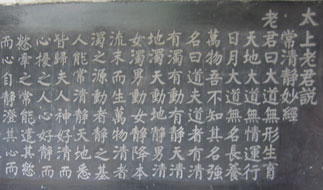 太上老君說
常清靜妙經
老君曰大道無形生育
天地大道無情運行
日月大道無名長養
萬物吾不知其名強
名曰道夫道者有清
有濁有動有靜天清
地濁天動地靜男清
女濁男動女靜降本
流末而生萬物清者
濁之源動者靜之基
人能常清靜天地悉
皆歸夫人神好清而
心擾之人心好靜而
慾牽之常能遣其慾
而心自靜澄其心而